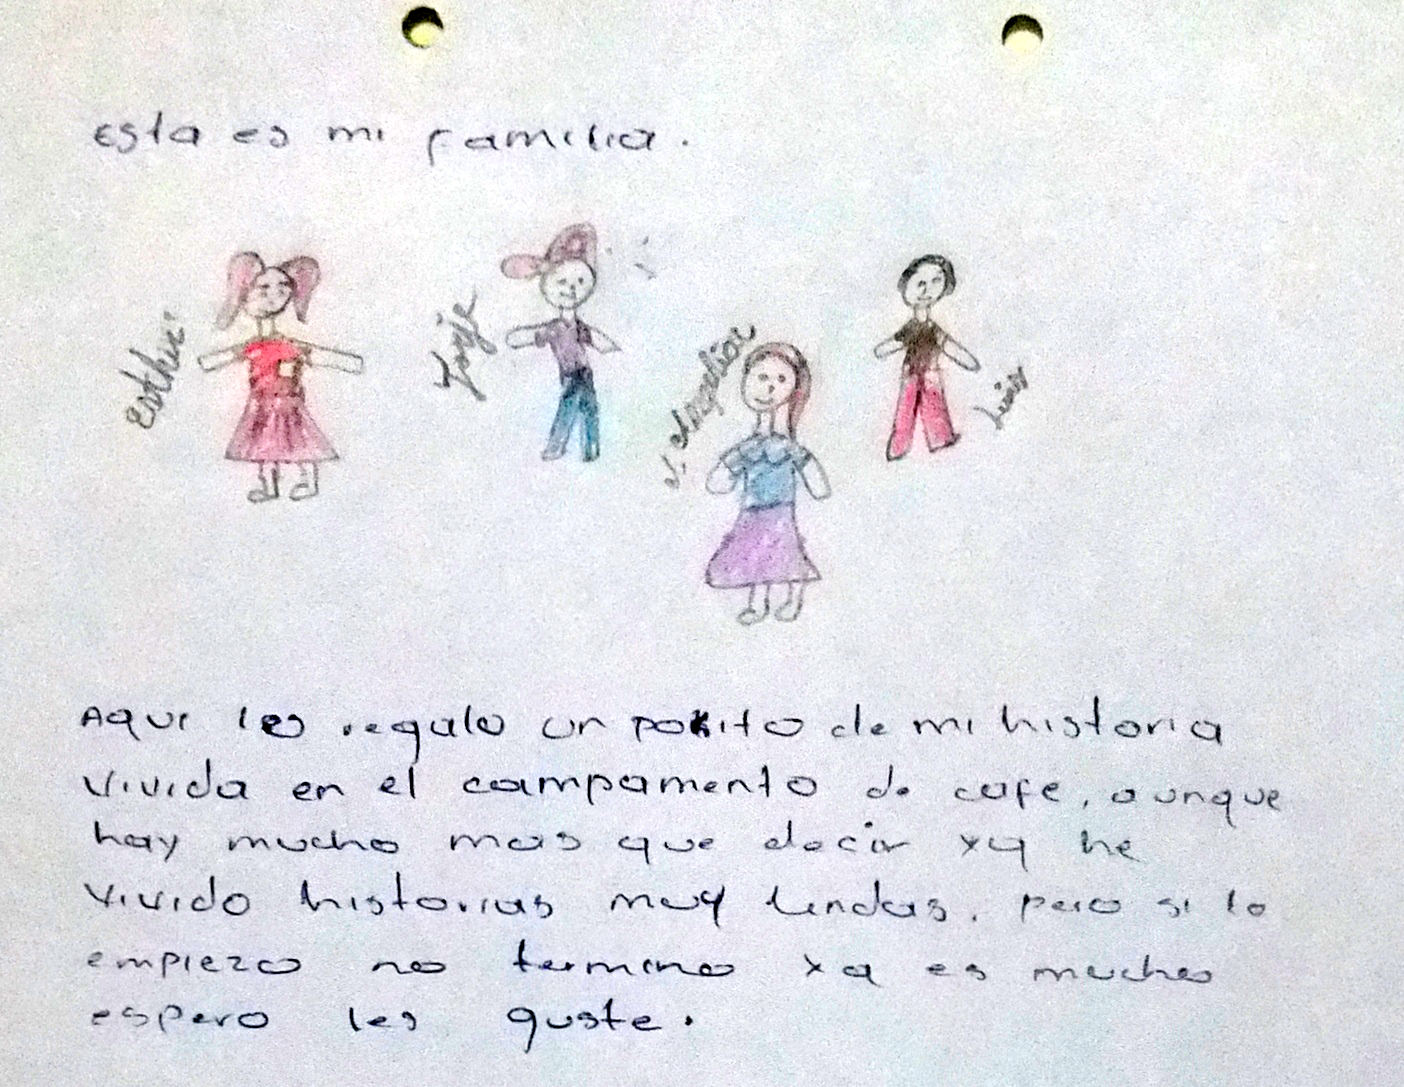 Esta es mi familia.
Esther
Jorje
Angelica
Luis
Aqui les regalo un pokito de mi historia
vivida en el campamento de cafe, aunque
hay mucho mas que decir xq he
vivido historias muy lindas, pero si lo
empiezo no termino xq es mucho
espero les guste.